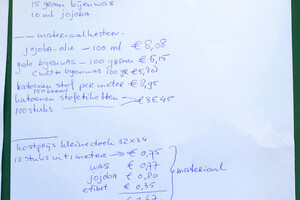 15 gram bijenwas
10 ml jojoba
materiaalkosten.
jojoba olie – 100 ml € 8,08
gele bijenwas – 100 gram € 6,15
(witte bijenwas 100 gr € 5,80)
katoenen stof per meter € 8,95
katoenen stofetiketten € 35.45
100 stuks
kostprijs kleine doek 32 x 34
12 stuks uit 1 meter → € 0,75
was € 0,77
jojoba € 0,80
etiket € 0,35
materiaal